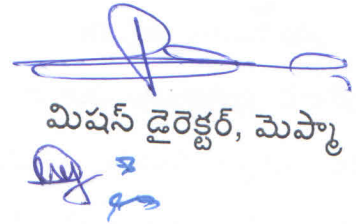 మిషన్ డైరెక్టర్, మెప్మా